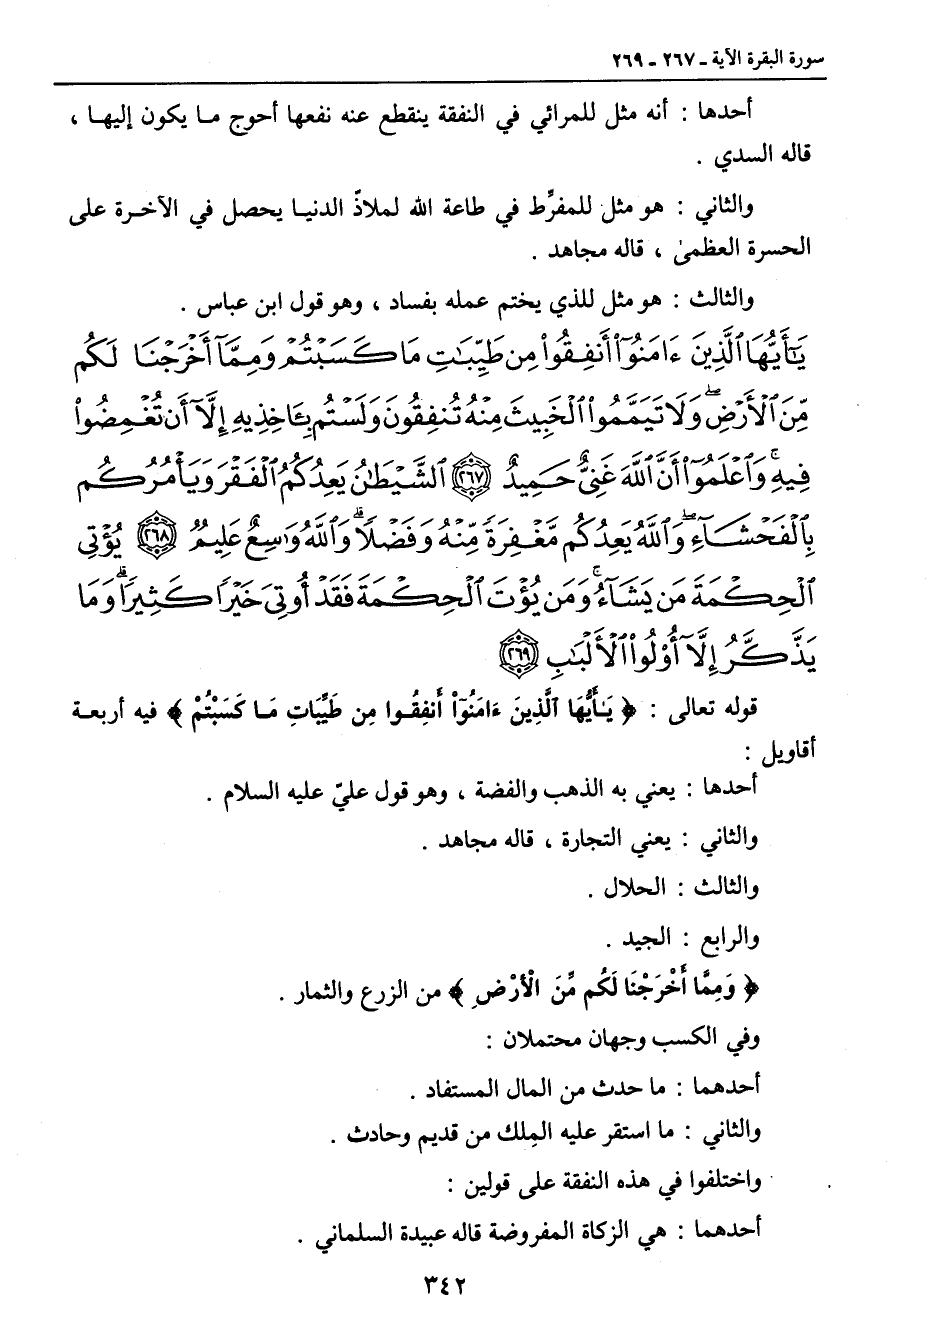 سورة البقرة الآية ـ ٢٦٧ ـ ٢٦٩
أحدها : أنه مثل للمرائي في النفقة ينقطع عنه نفعها أحوج ما يكون إليها ،
قاله السدي .
والثاني : هو مثل للمفرِّط في طاعة الله لملاذّ الدنيا يحصل في الآخرة على
الحسرة العظمىٰ ، قاله مجاهد .
والثالث : هو مثل للذي يختم عمله بفساد ، وهو قول ابن عباس .
يَٰٓأَيُّهَا ٱلَّذِينَ ءَامَنُوٓاْ أَنفِقُواْ مِن طَيِّبَٰتِ مَا كَسَبْتُمْ وَمِمَّآ أَخْرَجْنَا لَكُم
مِّنَ ٱلْأَرْضِۖ وَلَا تَيَمَّمُواْ ٱلْخَبِيثَ مِنْهُ تُنفِقُونَ وَلَسْتُم بِـَٔاخِذِيهِ إِلَّآ أَن تُغْمِضُواْ
فِيهِۚ وَٱعْلَمُوٓاْ أَنَّ ٱللَّهَ غَنِيٌّ حَمِيدٌ ٢٦٧ ٱلشَّيْطَٰنُ يَعِدُكُمُ ٱلْفَقْرَ وَيَأْمُرُكُم
بِٱلْفَحْشَآءِۖ وَٱللَّهُ يَعِدُكُم مَّغْفِرَةً مِّنْهُ وَفَضْلًاۗ وَٱللَّهُ وَٰسِعٌ عَلِيمٌ ٢٦٨ يُؤْتِي
ٱلْحِكْمَةَ مَن يَشَآءُۚ وَمَن يُؤْتَ ٱلْحِكْمَةَ فَقَدْ أُوتِيَ خَيْرًا كَثِيرًاۗ وَمَا
يَذَّكَّرُ إِلَّآ أُوْلُواْ ٱلْأَلْبَٰبِ ٢٦٩
قوله تعالى : ﴿ يَٰأَيُّهَا ٱلَّذِينَ ءَامَنُوٓاْ أَنفِقُوا مِن طَيِّبَاتِ مَا كَسَبْتُمْ ﴾ فيه أربعة
أقاويل :
أحدها : يعني به الذهب والفضة ، وهو قول عليّ عليه السلام .
والثاني : يعني التجارة ، قاله مجاهد .
والثالث : الحلال .
والرابع : الجيد .
﴿ وَمِمَّا أَخْرَجْنَا لَكُم مِّنَ الْأرْضِ ﴾ من الزرع والثمار .
وفي الكسب وجهان محتملان :
أحدهما : ما حدث من المال المستفاد .
والثاني : ما استقر عليه المِلك من قديم وحادث .
واختلفوا في هذه النفقة على قولين :
أحدهما : هي الزكاة المفروضة قاله عبيدة السلماني .
٣٤٢